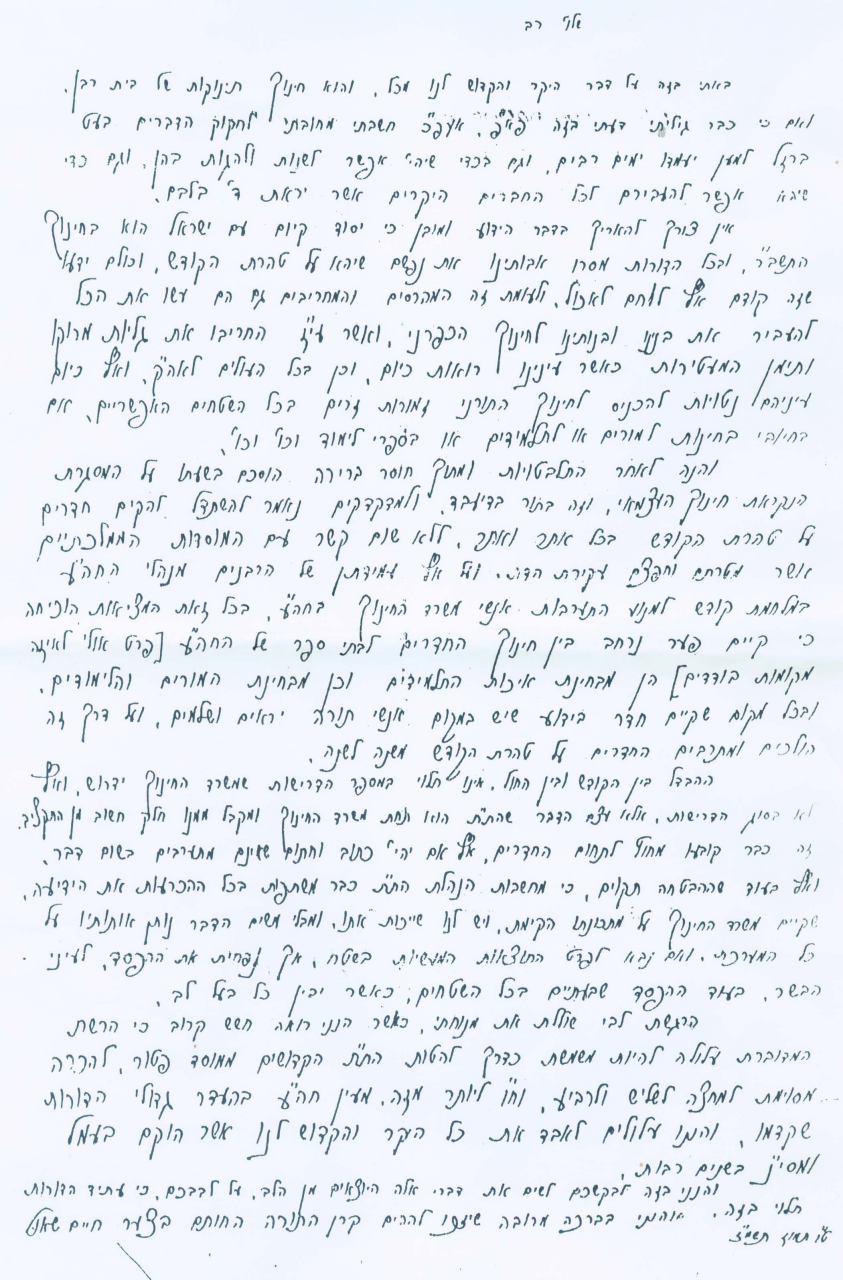 שלו' רב
באתי בזה על דבר היקר והקדוש לנו מכל, והוא חינוך תינוקות של בית רבן.
ואם כי כבר גיליתי דעתי בזה פא"פ, אעפ"כ חשבתי מחובתי לחקוק הדברים בעט
ברזל למען יעמדו ימים רבים, וגם בכדי שיהי' אפשר לשנות ולהגות בהן, וגם כדי
שיהא אפשר להעבירם לכל החברים היקרים אשר יראת ד' בלבם.
אין צורך להאריך בדבר הידוע ומובן כי יסוד קיום עם ישראל הוא בחינוך
התשב"ר, ובכל הדורות מסרו אבותינו את נפשם שיהא על טהרת הקודש, וכולם ידעו
שזה קודם אף ללחם לאכול, ולעומת זה המהרסים והמחריבים גם הם עשו את הכל
להעביר את בנינו ובנותינו לחינוך הכפרני, ואשר עי"ז החריבו את גליות מרוקו
ותימן המעטירות כאשר עינינו רואות כיום, וכן בכל העולים לאה"ק, ואף כיום
עיניהם נטויות להכניס לחינוך התורני זמורות זרים בכל השטחים האפשריים, אם
בחיובי בחינות למורים או לתלמידים או בספרי לימוד וכו' וכו'.
והנה לאחר התלבטויות ומתוך חוסר ברירה הוסכם בשעתו על המסגרת
הנקראת חינוך העצמאי, וזה בתור בדיעבד, ולמדקדקים נאמר להשתדל להקים חדרים
על טהרת הקודש בכל אתר ואתר, ללא שום קשר עם המוסדות הממלכתיים
אשר מטרתם וחפצם עקירת הדת. ועל אף עמידתן של הרבנים מנהלי החה"ע
במלחמת קודש למנוע התערבות אנשי משרד החינוך בחה"ע, בכל זאת המציאות הוכיחה
כי קיים פער נרחב בין חינוך החדרים לבתי ספר של החה"ע [פרט אולי לאיזה
מקומות בודדים] הן מבחינת איכות התלמידים וכן מבחינת המורים והלימודים.
ובכל מקום שקיים חדר בידוע שיש במקום אנשי תורה יראים ושלמים, ועל דרך זה
הולכים ומתרבים החדרים על טהרת הקודש משנה לשנה.
ההבדל בין הקודש ובין החול, אינו תלוי במספר הדרישות שמשרד החינוך ידרוש, ואף
לא בסוג הדרישות, אלא עצם הדבר שהת"ת הוא תחת משרד החינוך ומקבל ממנו חלק חשוב מן התקציב,
זה כבר קובעו מחוץ לתחום החדרים, אף אם יהי' כתוב וחתום שאינם מתערבים בשום דבר,
ואף בעוד שההבטחה תקוים, כי מחשבות הנהלת הת"ת כבר משתפות בכל ההכרעות את הידיעה,
שקיים משרד החינוך על מתכונתו הקימת, ויש לנו שייכות אתו, ומבלי משים הדבר נותן אותותיו על
כל המערכת. ואם נבא לפרט התוצאות המעשיות בשטח, אך נפחית את ההפסד, לעיני
הבשר, בעוד ההפסד שבעתיים בכל השטחים, כאשר יבין כל בעל לב.
הרגשת לבי שוללת את מנוחתי, כאשר הנני רואה חשש קרוב כי הרשת
המדוברת עלולה להיות משמשת כדרך להטות הת"ת הקדושים ממוסד פטור, להכרה
מסוימת למחצה לשליש ולרביע, וח"ו ליותר מזה, מעין חה"ע בהעדר גדולי הדורות
שקדמו, והננו עלולים לאבד את כל היקר והקדוש לנו אשר הוקם בעמל
ומסי"נ בשנים רבות.
והנני בזה לבקשכם לשים את דברי אלה היוצאים מן הלב, על לבבכם, כי עתיד הדורות
תלוי בזה. ואהיתי בברכה מרובה שיזכו להרים קרן התורה החותם בצער חיים שאול
ט"ו תמוז תשמ"ז